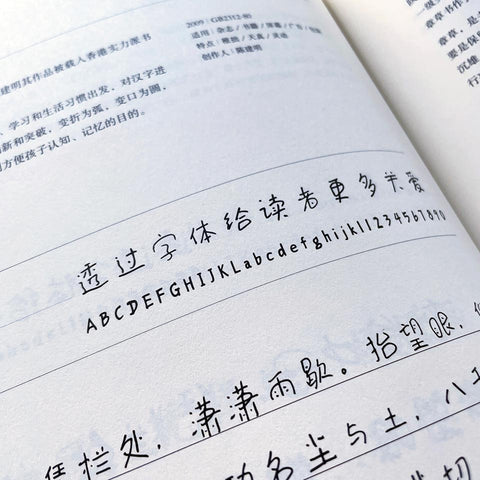 建明其作品被载入香港实力派书
、学习和生活习惯出发，对汉字进
新和突破，变折为弧，变口为圆，
方便孩子认知、记忆的目的。
2009 | GB2312-80
适用：杂志／书籍／屏幕／广告／
特点：稚拙／天真／灵动
创作人：陈建明
章草书作
章草，是
要是保
沉雄
行
透过字体给读者更多关爱
ABCDEFGHIJKLabcdefghijkl1234567890
凭栏处，潇潇雨歇。抬望眼，
功名尘与土，八千
悲切